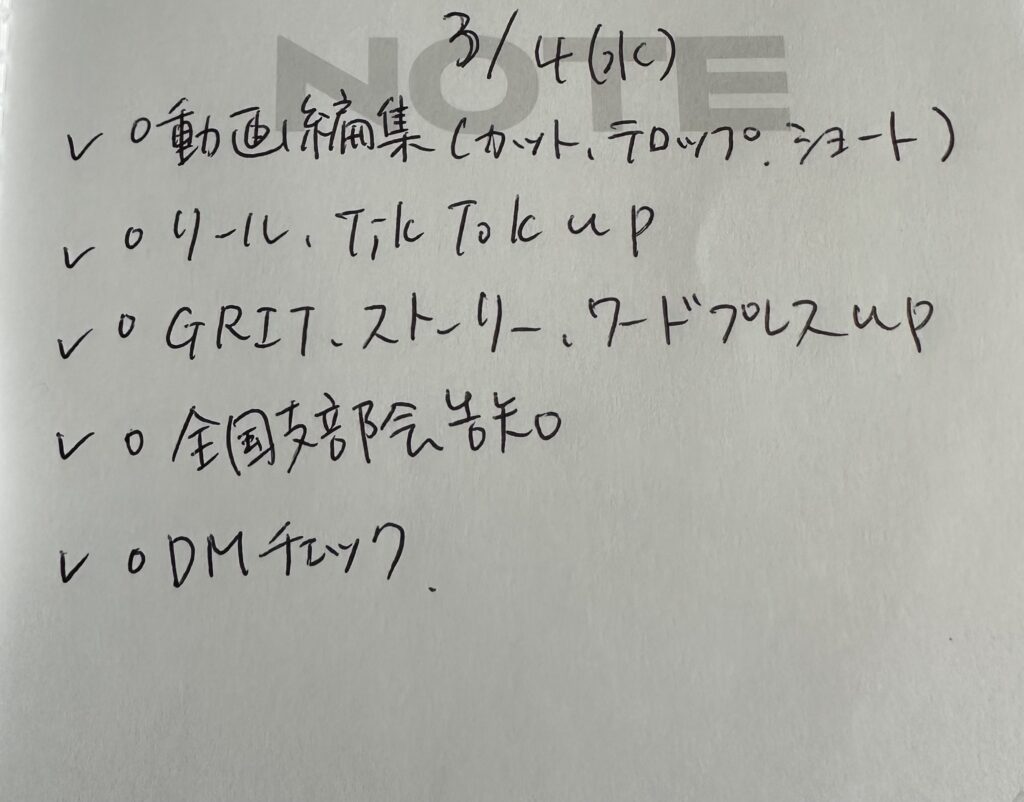 NOTE
3/4(水)
✓ ○ 動画編集(カット、テロップ、ショート)
✓ ○ リール、TikTok up
✓ ○ GRIT、ストーリー、ワードプレスup
✓ ○ 全国支部会告知
✓ ○ DMチェック.